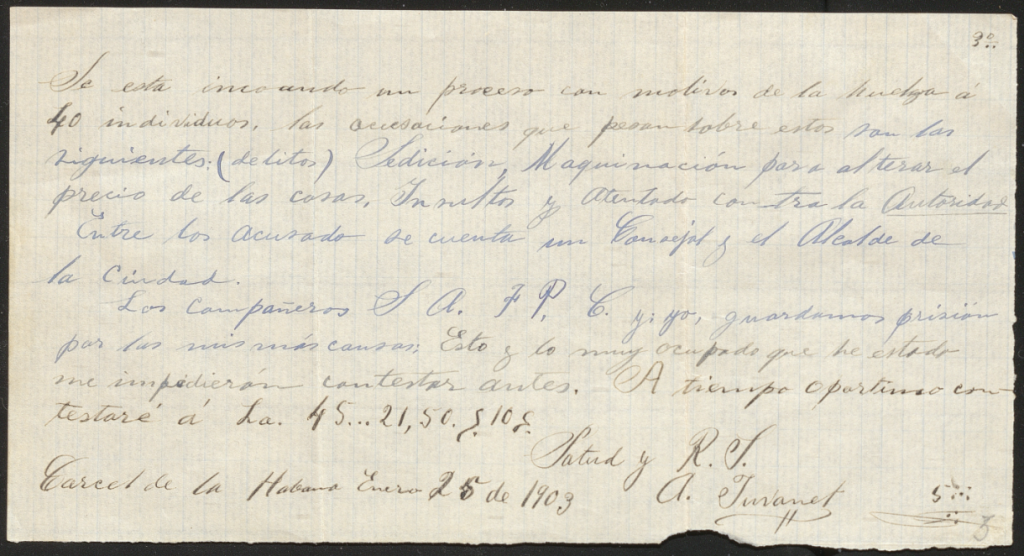 3º..
Se esta incoando un proceso con motivos de la huelga á
40 individuos, las acusaciones que pesan sobre estos son las
siguientes: (delitos) Sedición, Maquinación para alterar el
precio de las cosas, Insultos y Atentado contra la Autoridad
Entre los acusado se cuenta un Concejal y el Alcalde de
la Ciudad.
Los compañeros S A. F P. C. y; yo, guardamos prisión
por las mismas causas; Esto y lo muy ocupado que he estado
me impidierón contestar antes. A tiempo oportuno con-
testaré á La. 45...21,50. 10
Salud y R. S.
Carcel de la Habana Enero 25 de 1903 A.
5